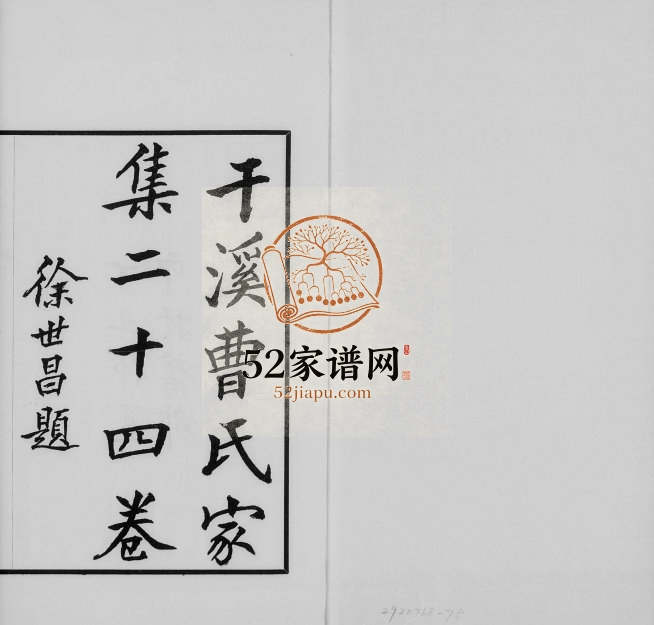 干溪曹氏家
集二十四卷
徐世昌題
52家谱网
52jiapu.com
2920768-75